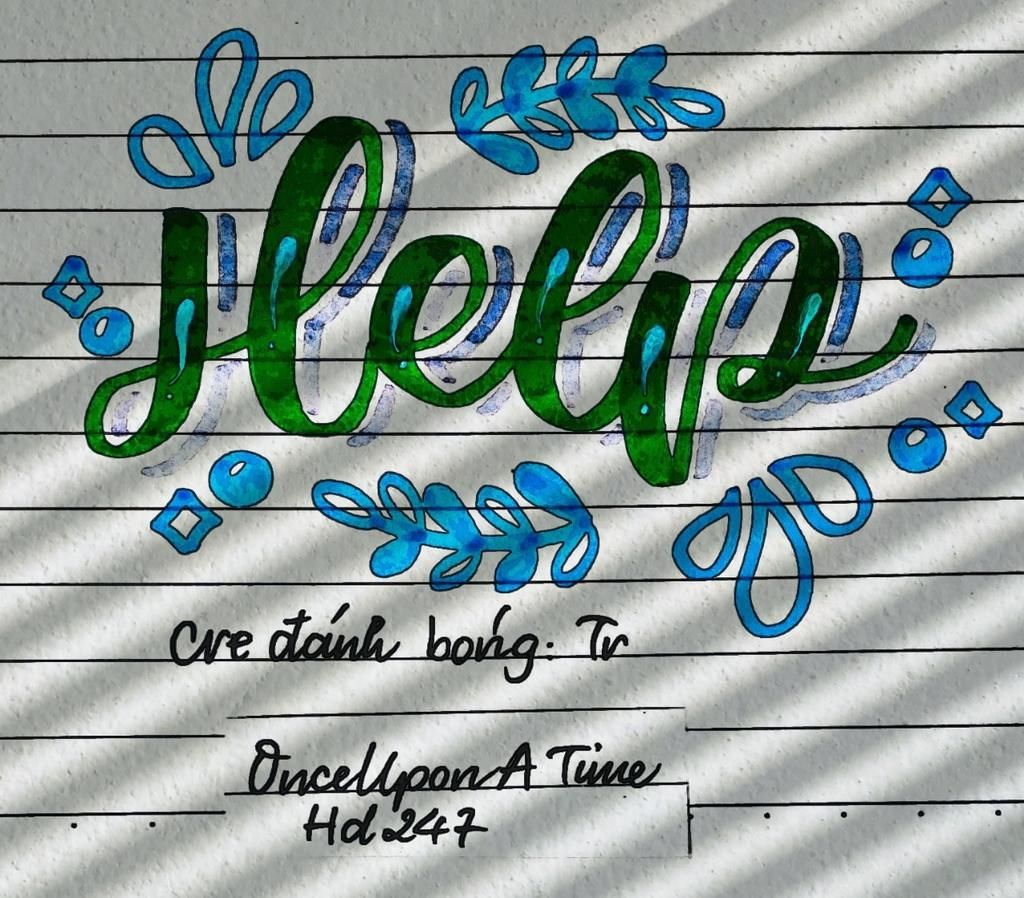 Help
Cre đánh bóng: Tr
OnceUponA Time
Hd247